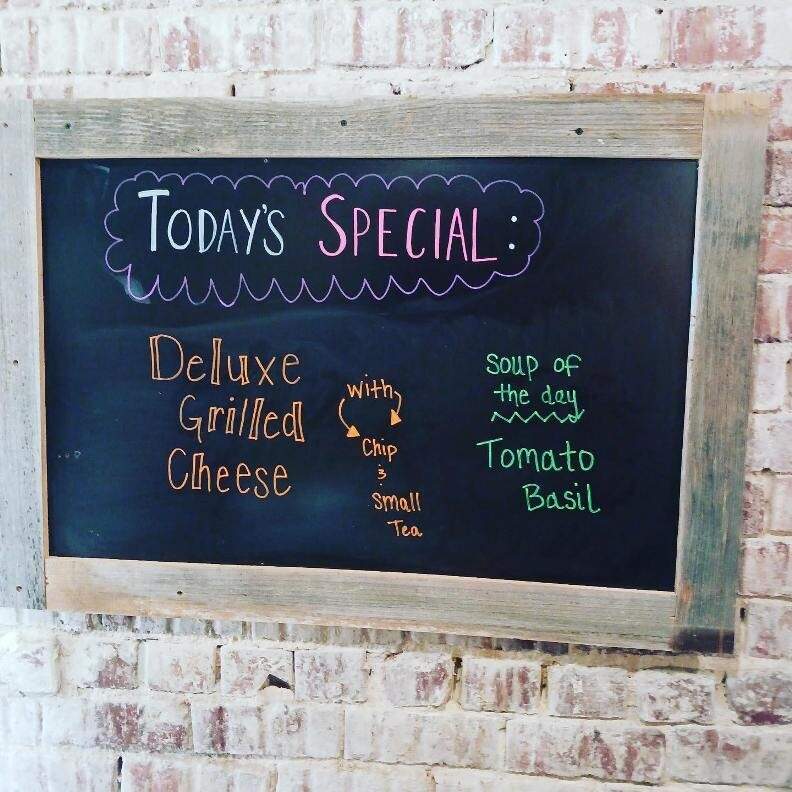 TODAY'S SPECIAL:
Deluxe
Grilled
Cheese
with
Chip
&
Small
Tea
Soup of
the day
Tomato
Basil